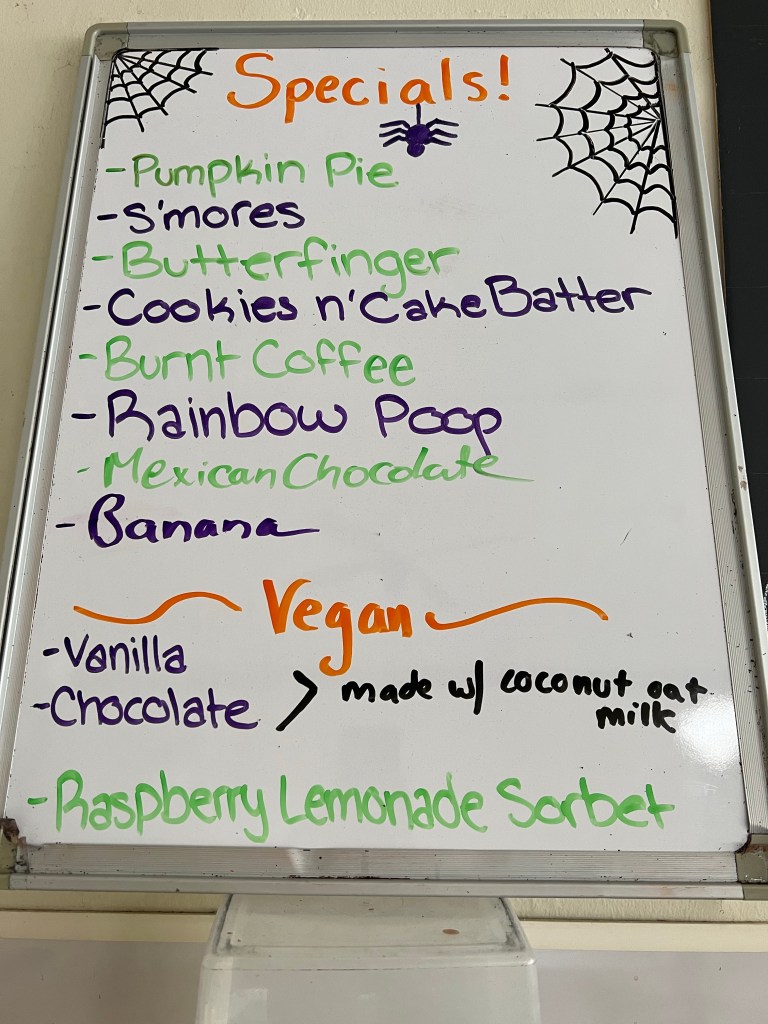 Specials!
-Pumpkin Pie
-S'mores
-Butterfinger
-Cookies n' Cake Batter
-Burnt Coffee
-Rainbow Poop
-Mexican Chocolate
-Banana
Vegan
-Vanilla
-Chocolate > made w/ coconut oat
milk
-Raspberry Lemonade Sorbet